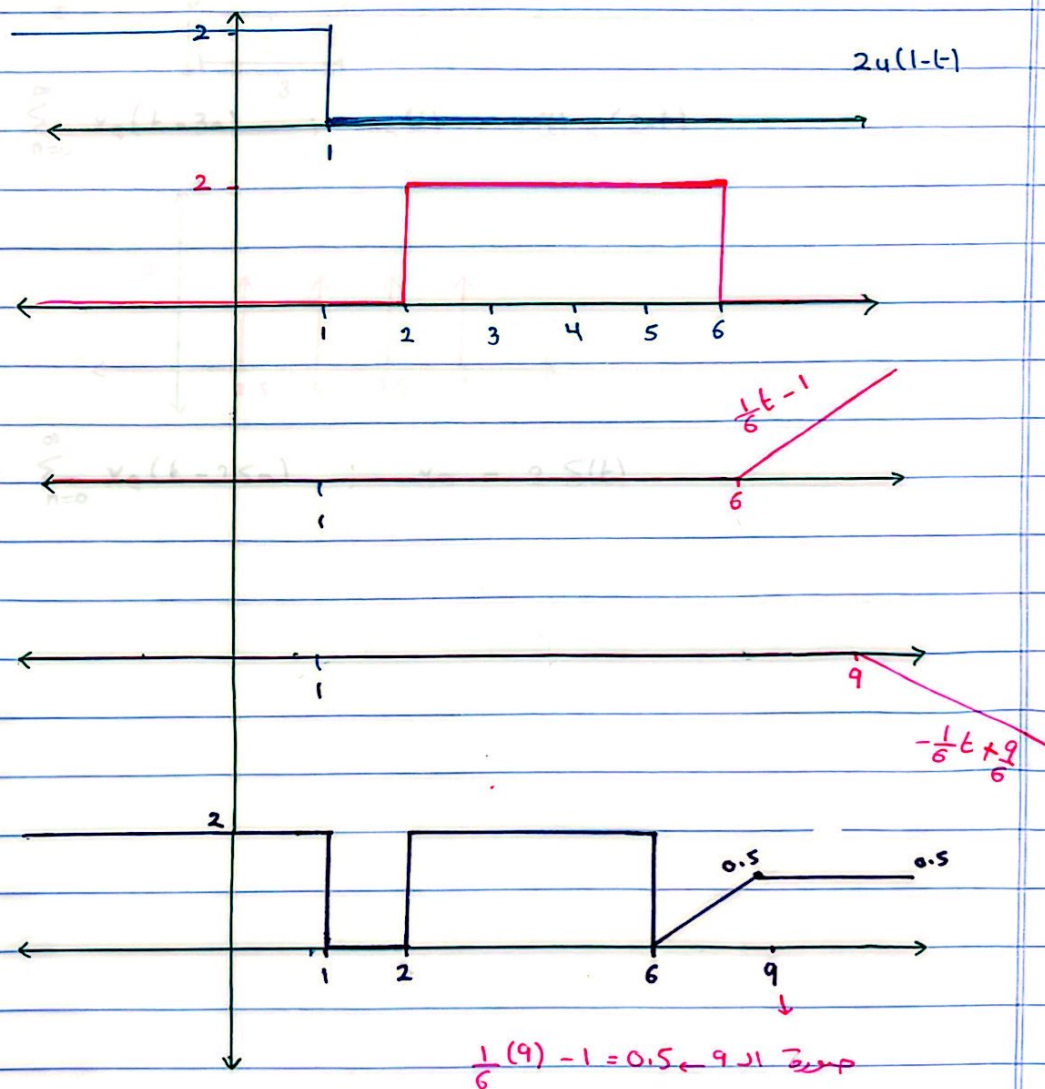 2
2u(1-t)
1
2
1 2 3 4 5 6
1/6 t - 1
1
6
1
9
-1/6 t + 9/6
2
0.5 0.5
1 2 6 9
↓
1/6 (9) - 1 = 0.5 ← 9 صورة الـ